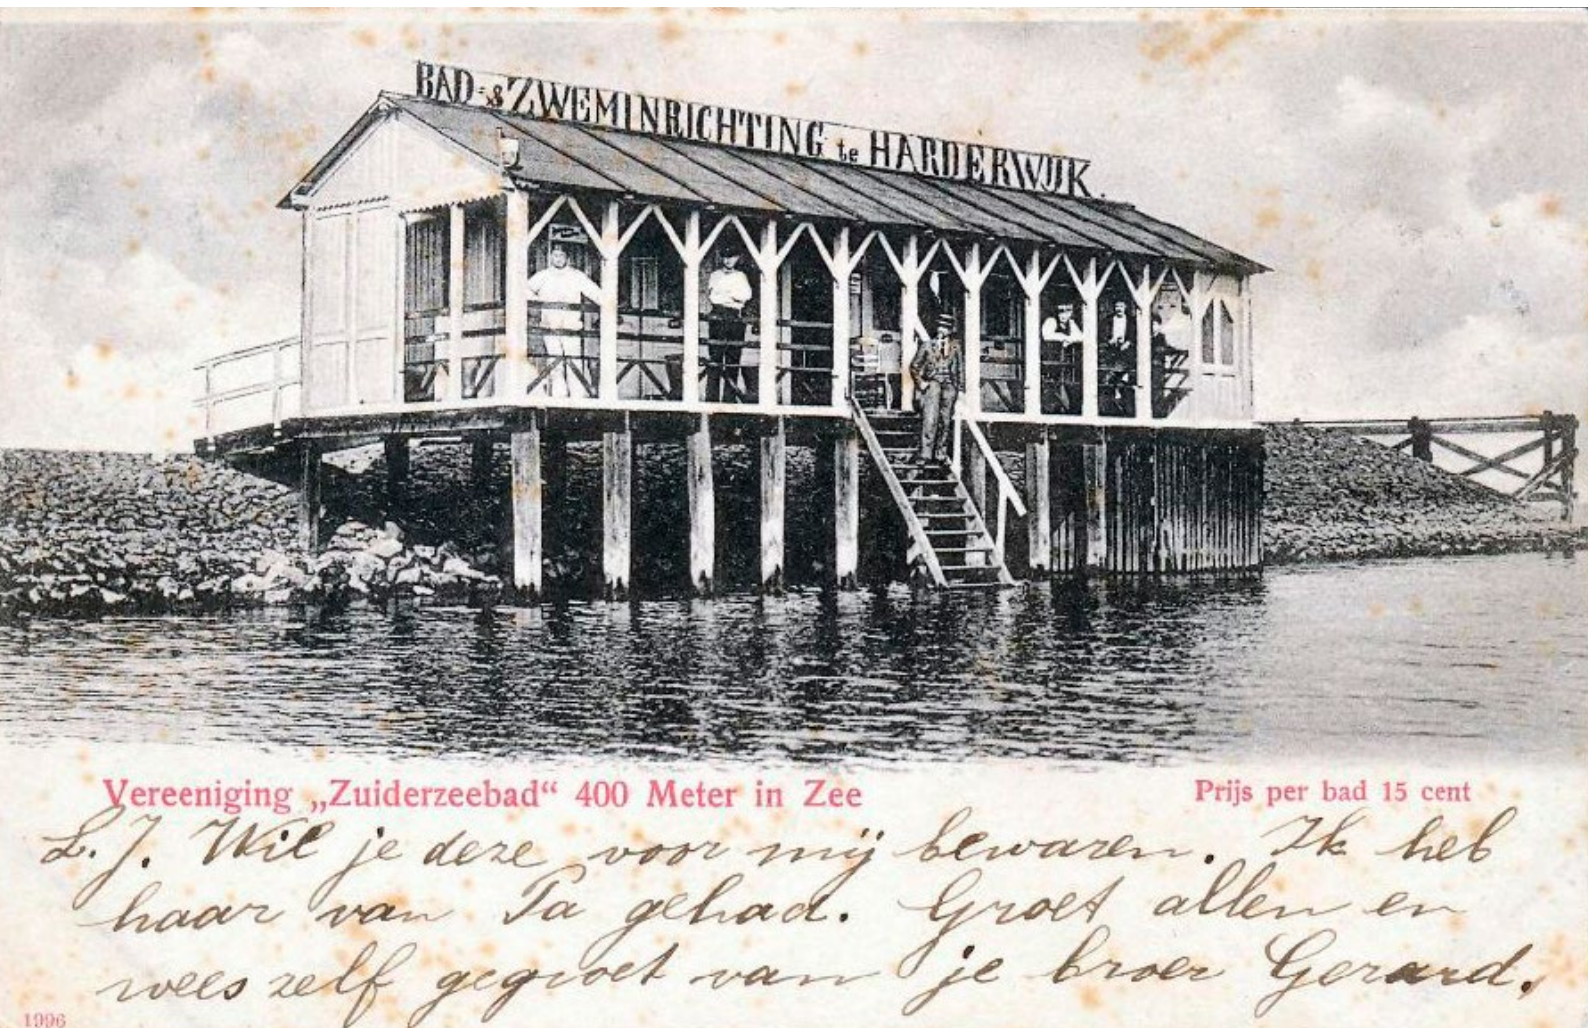 BAD- & ZWEMINRICHTING te HARDERWIJK.
Vereeniging „Zuiderzeebad“ 400 Meter in Zee
Prijs per bad 15 cent
L.J. Wil je deze voor mij bewaren. Ik heb
haar van Pa gehad. Groet allen en
wees zelf gegroet van je broer Gerard.
1996